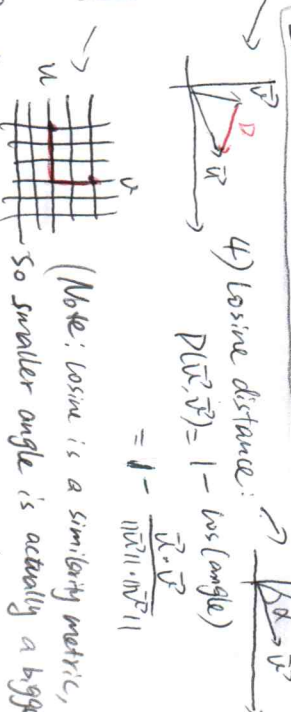 v⃗
D
u⃗
4) Cosine distance:
D(u⃗,v⃗) = 1 - cos(angle)
= 1 - u⃗·v⃗ / ||u⃗||·||v⃗||
α
v⃗
u
v
(Note: Cosine is a similarity metric,
so smaller angle is actually a bigge